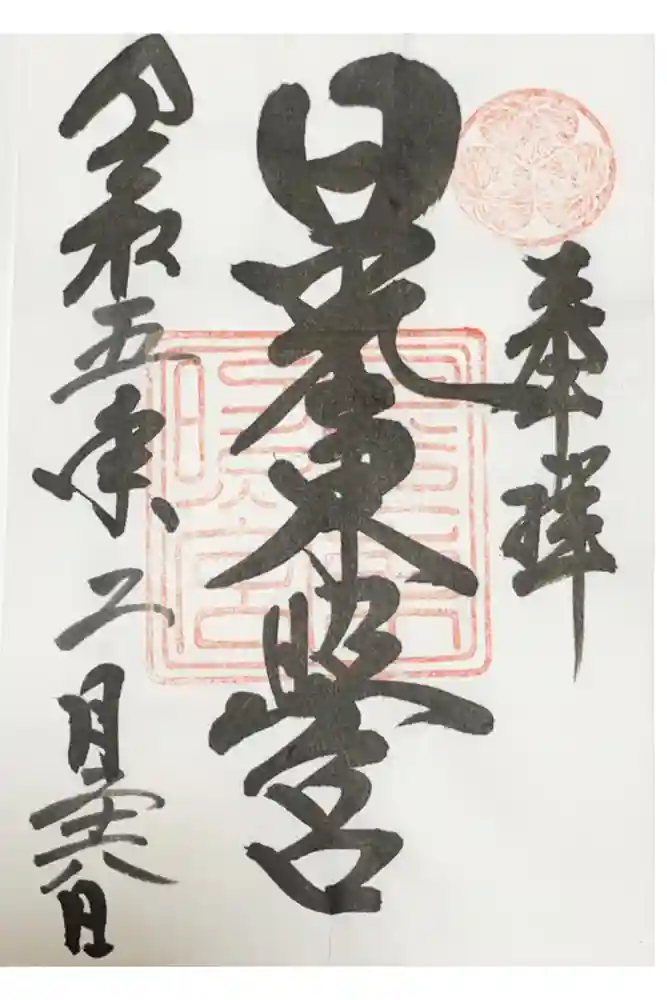 奉拝
日光東照宮
令和五年二月十六日